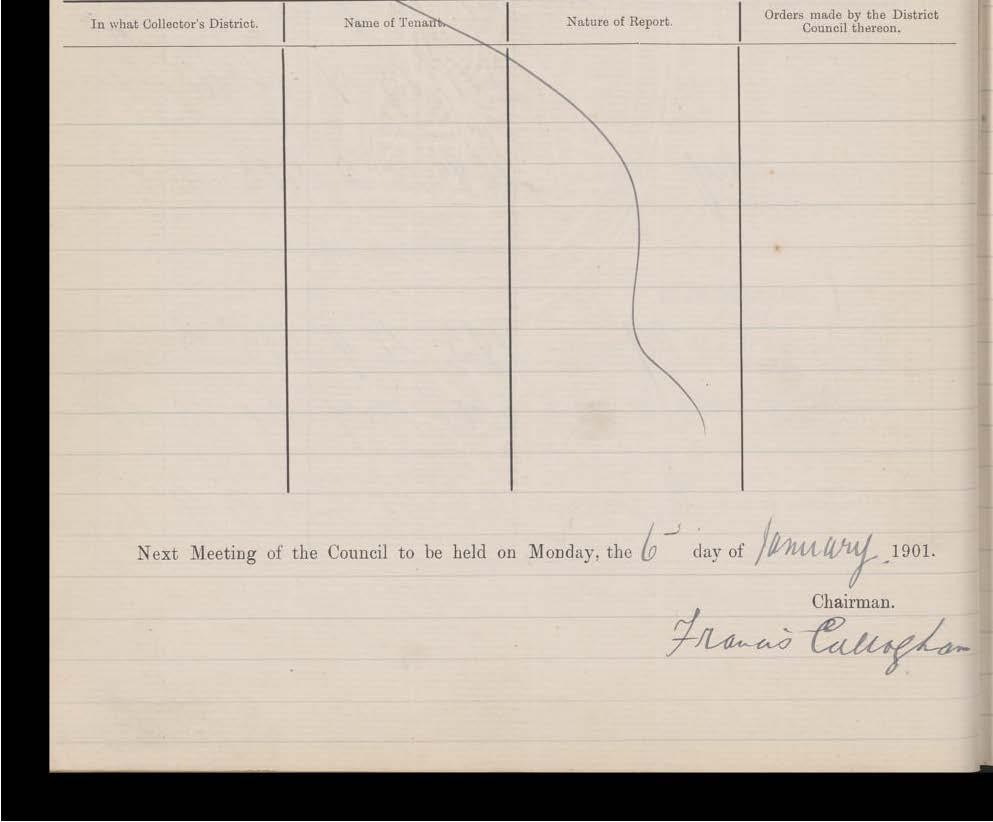 In what Collector's District. Name of Tenant. Nature of Report. Orders made by the District Council thereon.
Next Meeting of the Council to be held on Monday, the 6 day of January 1901.
Chairman.
Francis Callaghan